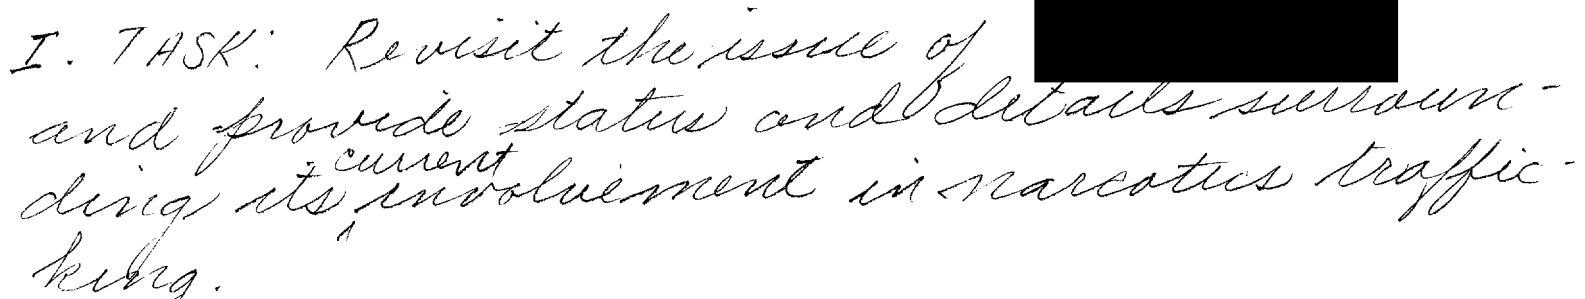 I. TASK: Revisit the issue of
and provide status and details surroun-
ding its current involvement in narcotics traffic-
king.